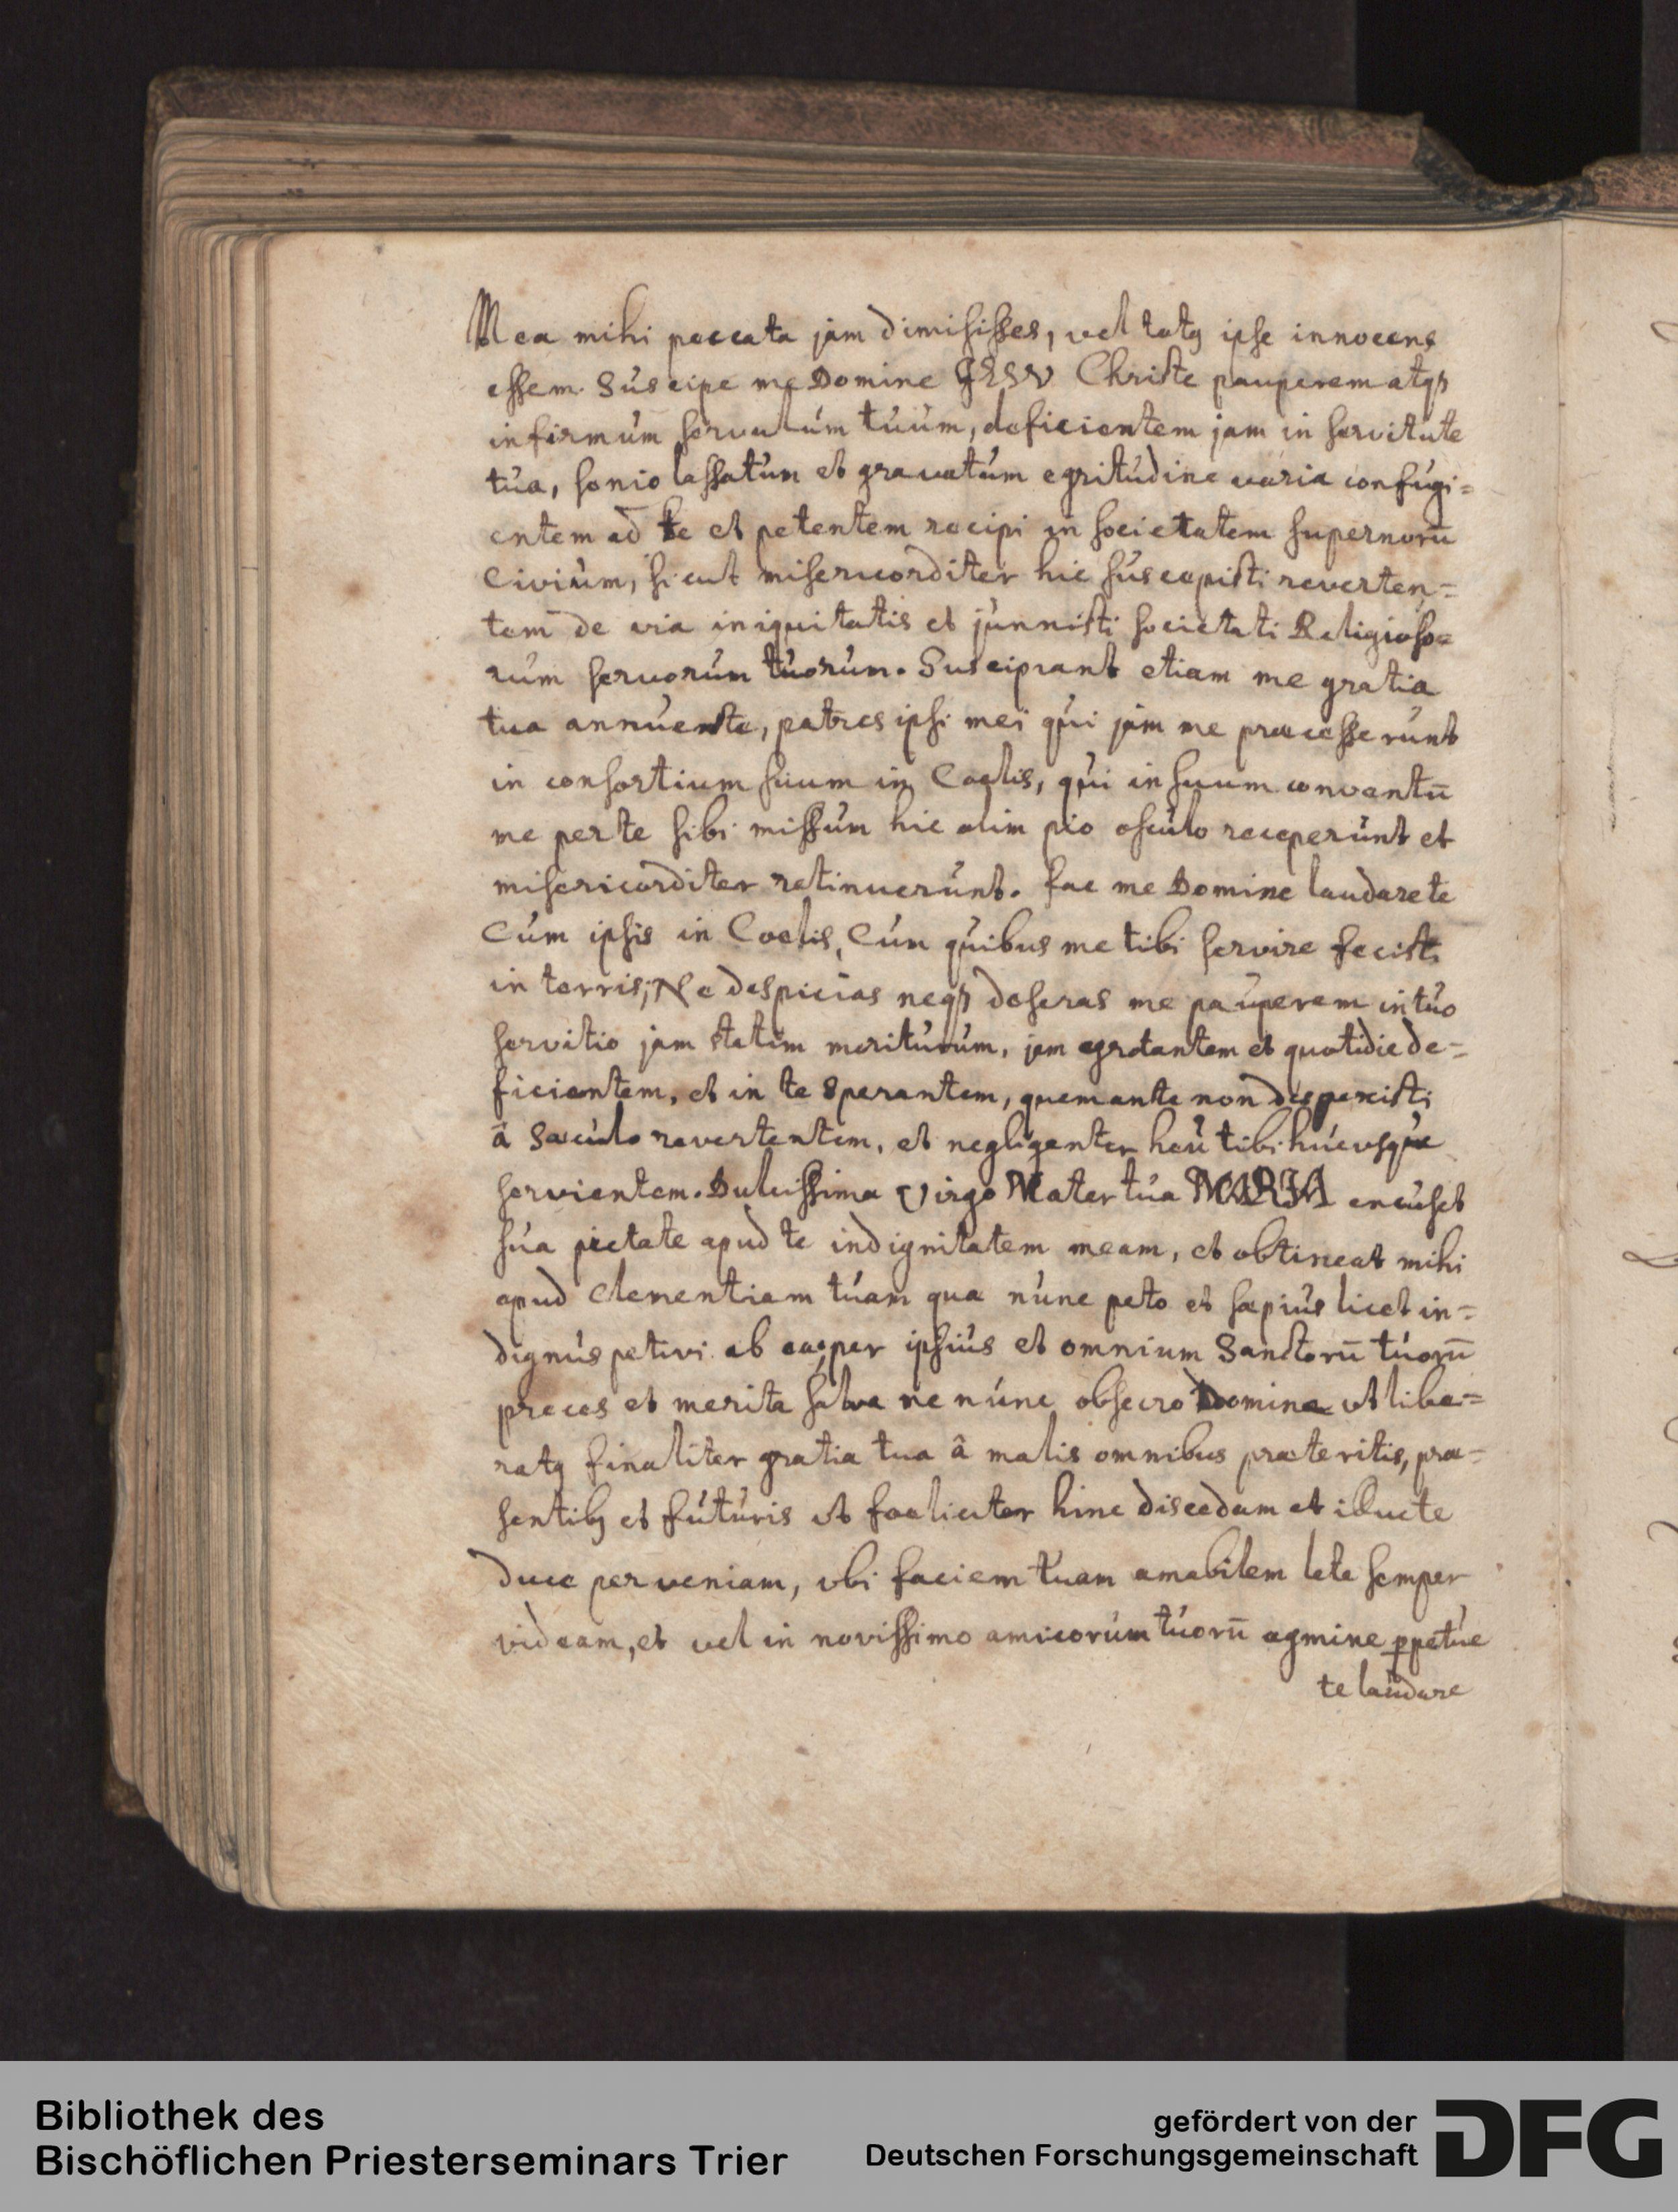 Mea mihi peccata jam dimisisses, vel totq ipse innocens
essem. Suscipe me Domine JESV Christe pauperem atqꝫ
infirmum servulum tuum, deficientem jam in servitute
tua, senio lassatum et gravatum egritudine varia confugi=
entem ad te et petentem recipi in societatem supernorū
Civium, sicut misericorditer hic suscepisti reverten=
tem de via iniquitatis et junxisti societati Religioso=
rum servorum tuorum. Suscipiant etiam me gratia
tua annuente, patres ipsi mei qui jam me praecesserunt
in consortium suum in Coelis, qui in suum conventū
me per te sibi missum hic olim pio osculo receperunt et
misericorditer retinuerunt. fac me Domine laudare te
Cum ipsis in Coelis, Cum quibus me tibi servire fecisti
in terris; Ne despicias neqꝫ deseras me pauperem in tuo
servitio jam statim moriturum, jam egrotantem et quotidie de=
ficientem, et in te sperantem, quem ante non despexisti
â Saeculo revertentem, et negligenter heu tibi hucusque
servientem. Dulcissima Virgo Mater tua MARIA excuset
sua pietate apud te indignitatem meam, et obtineat mihi
apud Clementiam tuam quae nunc peto et saepius licet in=
dignus petivi ab ea, per ipsius et omnium Sanctorū tuorū
preces et merita salva me nunc obsecro Domine ut libe=
ratq finaliter gratia tua â malis omnibus praeteritis, prae=
sentibꝫ et futuris ut foeliciter hinc discedam et illuc te
duce perveniam, ubi faciem tuam amabilem lete semper
videam, et vel in novissimo amicorum tuorū agmine ꝑpetue
te laudare
Bibliothek des
Bischöflichen Priesterseminars Trier
gefördert von der
Deutschen Forschungsgemeinschaft
DFG